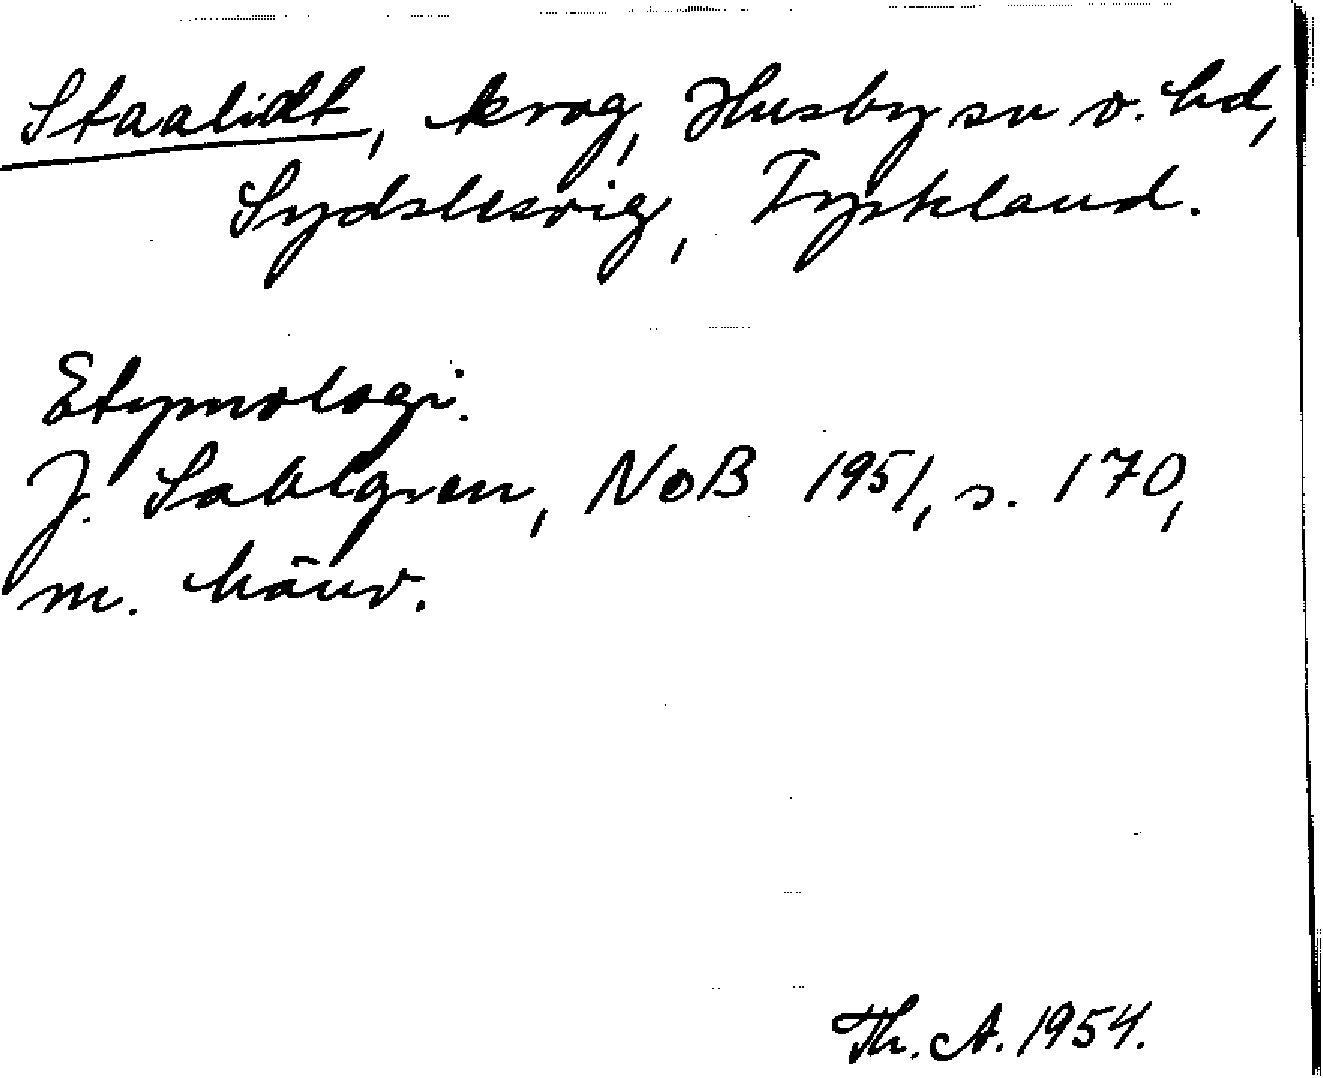 Staalidt, krog, Husby sn o. hd,
Sydslesvig, Tyskland.
Etymologi.
J. Sahlgren, NoB 1951, s. 170,
m. hänv.
Th. A. 1954.